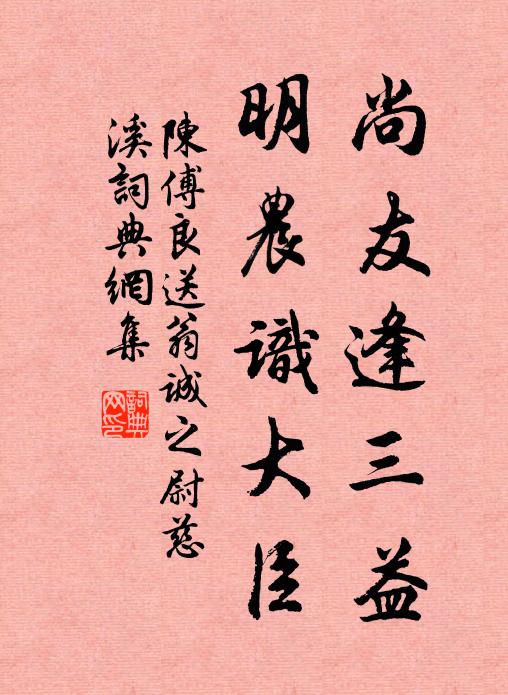 尚友逢三益
明農識大臣
陳傅良送翁誠之尉慈
溪詞典網集
詞典
网印